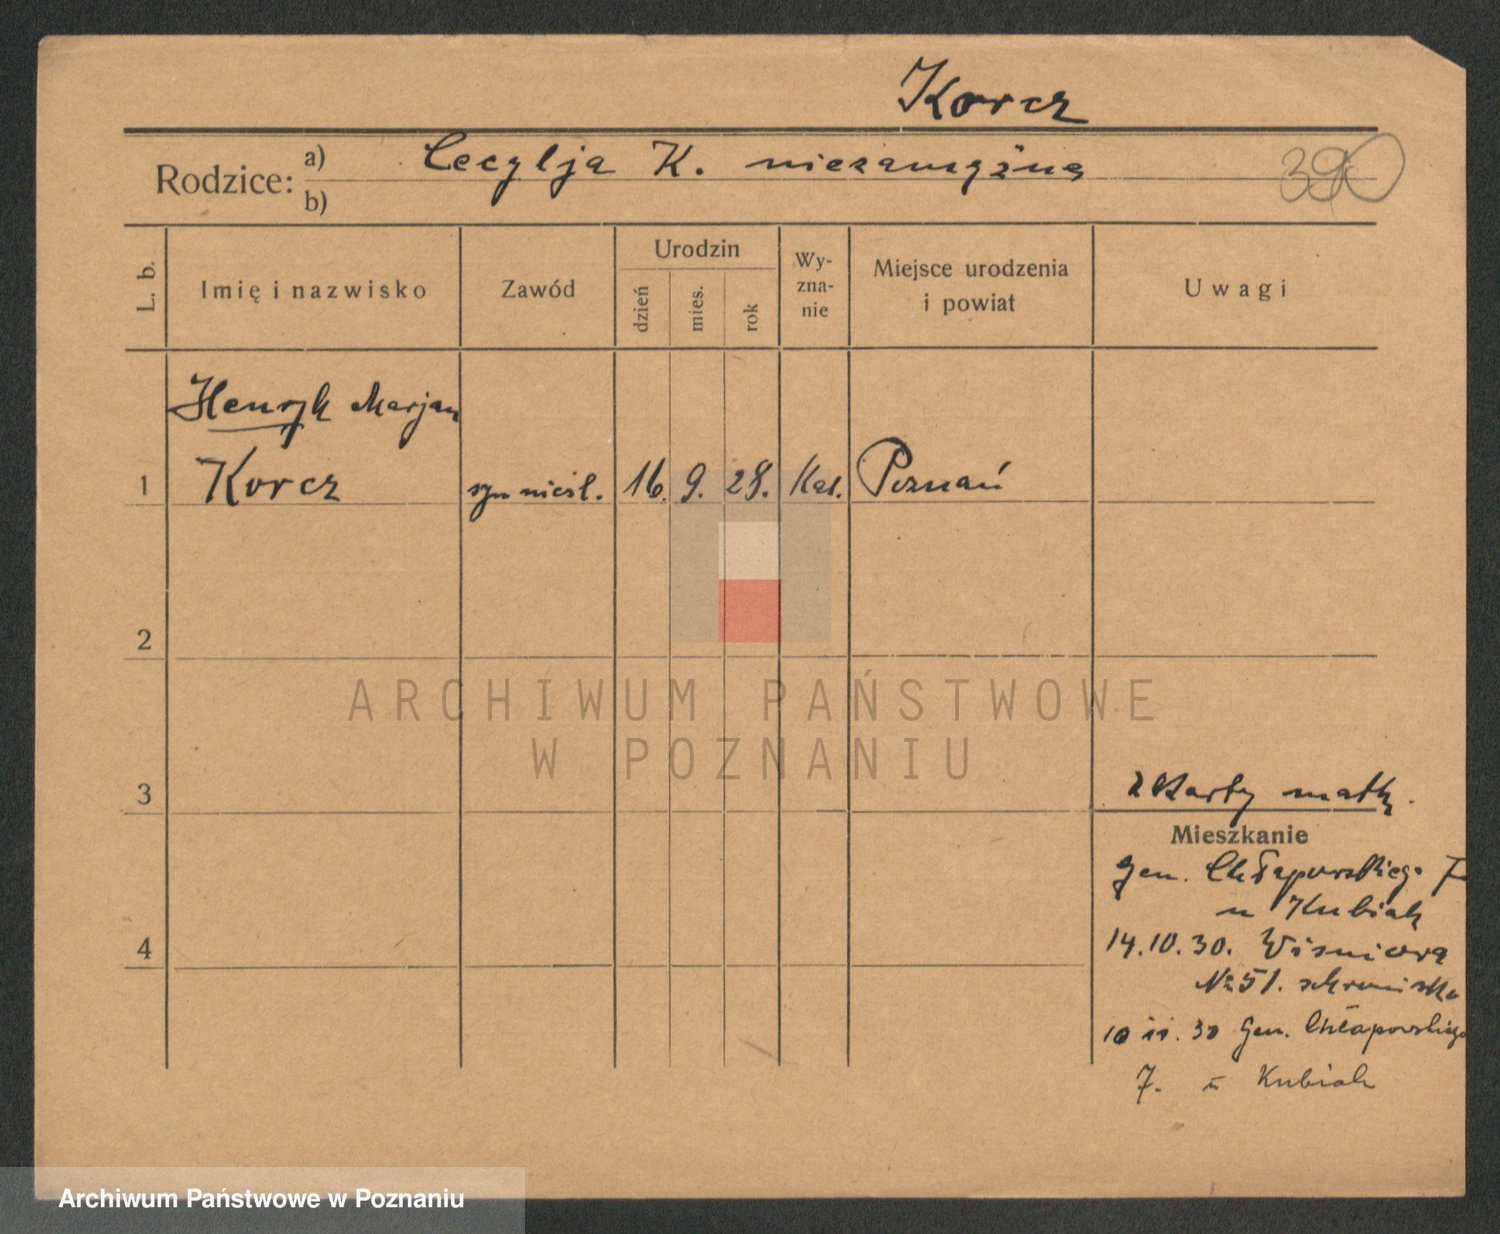 Korcz
Rodzice: a) Cecylja K. niezamężna
b)
390
L. b.
Imię i nazwisko
Zawód
Urodzin
dzień
mies.
rok
Wy-
zna-
nie
Miejsce urodzenia
i powiat
Uwagi
Henryk Marjan
1 Korcz syn nieśl. 16. 9. 28. Kat. Poznań
2
3
4
z Karty matki.
Mieszkanie
Gen. Chłapowskiego 7
u Kubiak
14.10.30. Wiśniowa
№ 51. schronisko
10 11. 30 Gen. Chłapowskiego
7. u Kubiak
ARCHIWUM PAŃSTWOWE
W POZNANIU
Archiwum Państwowe w Poznaniu